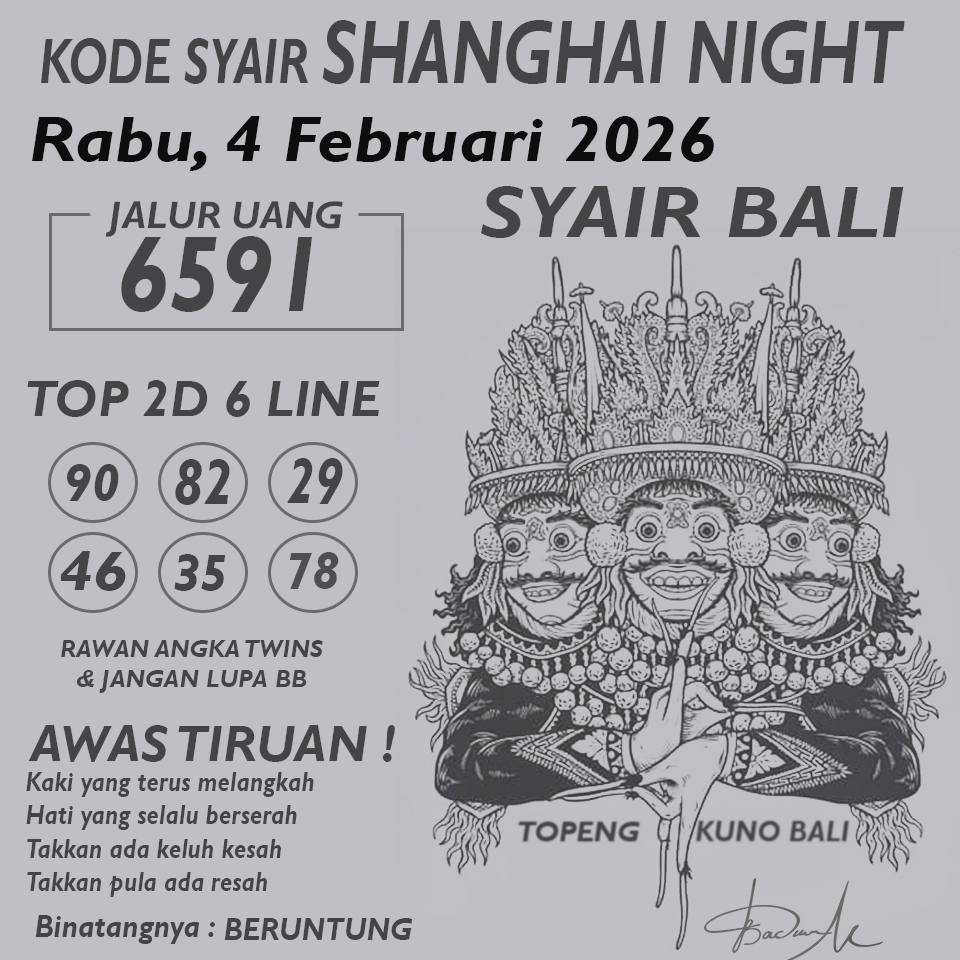 KODE SYAIR SHANGHAI NIGHT
Rabu, 4 Februari 2026
SYAIR BALI
JALUR UANG
6591
TOP 2D 6 LINE
90 82 29
46 35 78
RAWAN ANGKA TWINS
& JANGAN LUPA BB
AWAS TIRUAN !
Kaki yang terus melangkah
Hati yang selalu berserah
Takkan ada keluh kesah
Takkan pula ada resah
Binatangnya : BERUNTUNG
TOPENG KUNO BALI